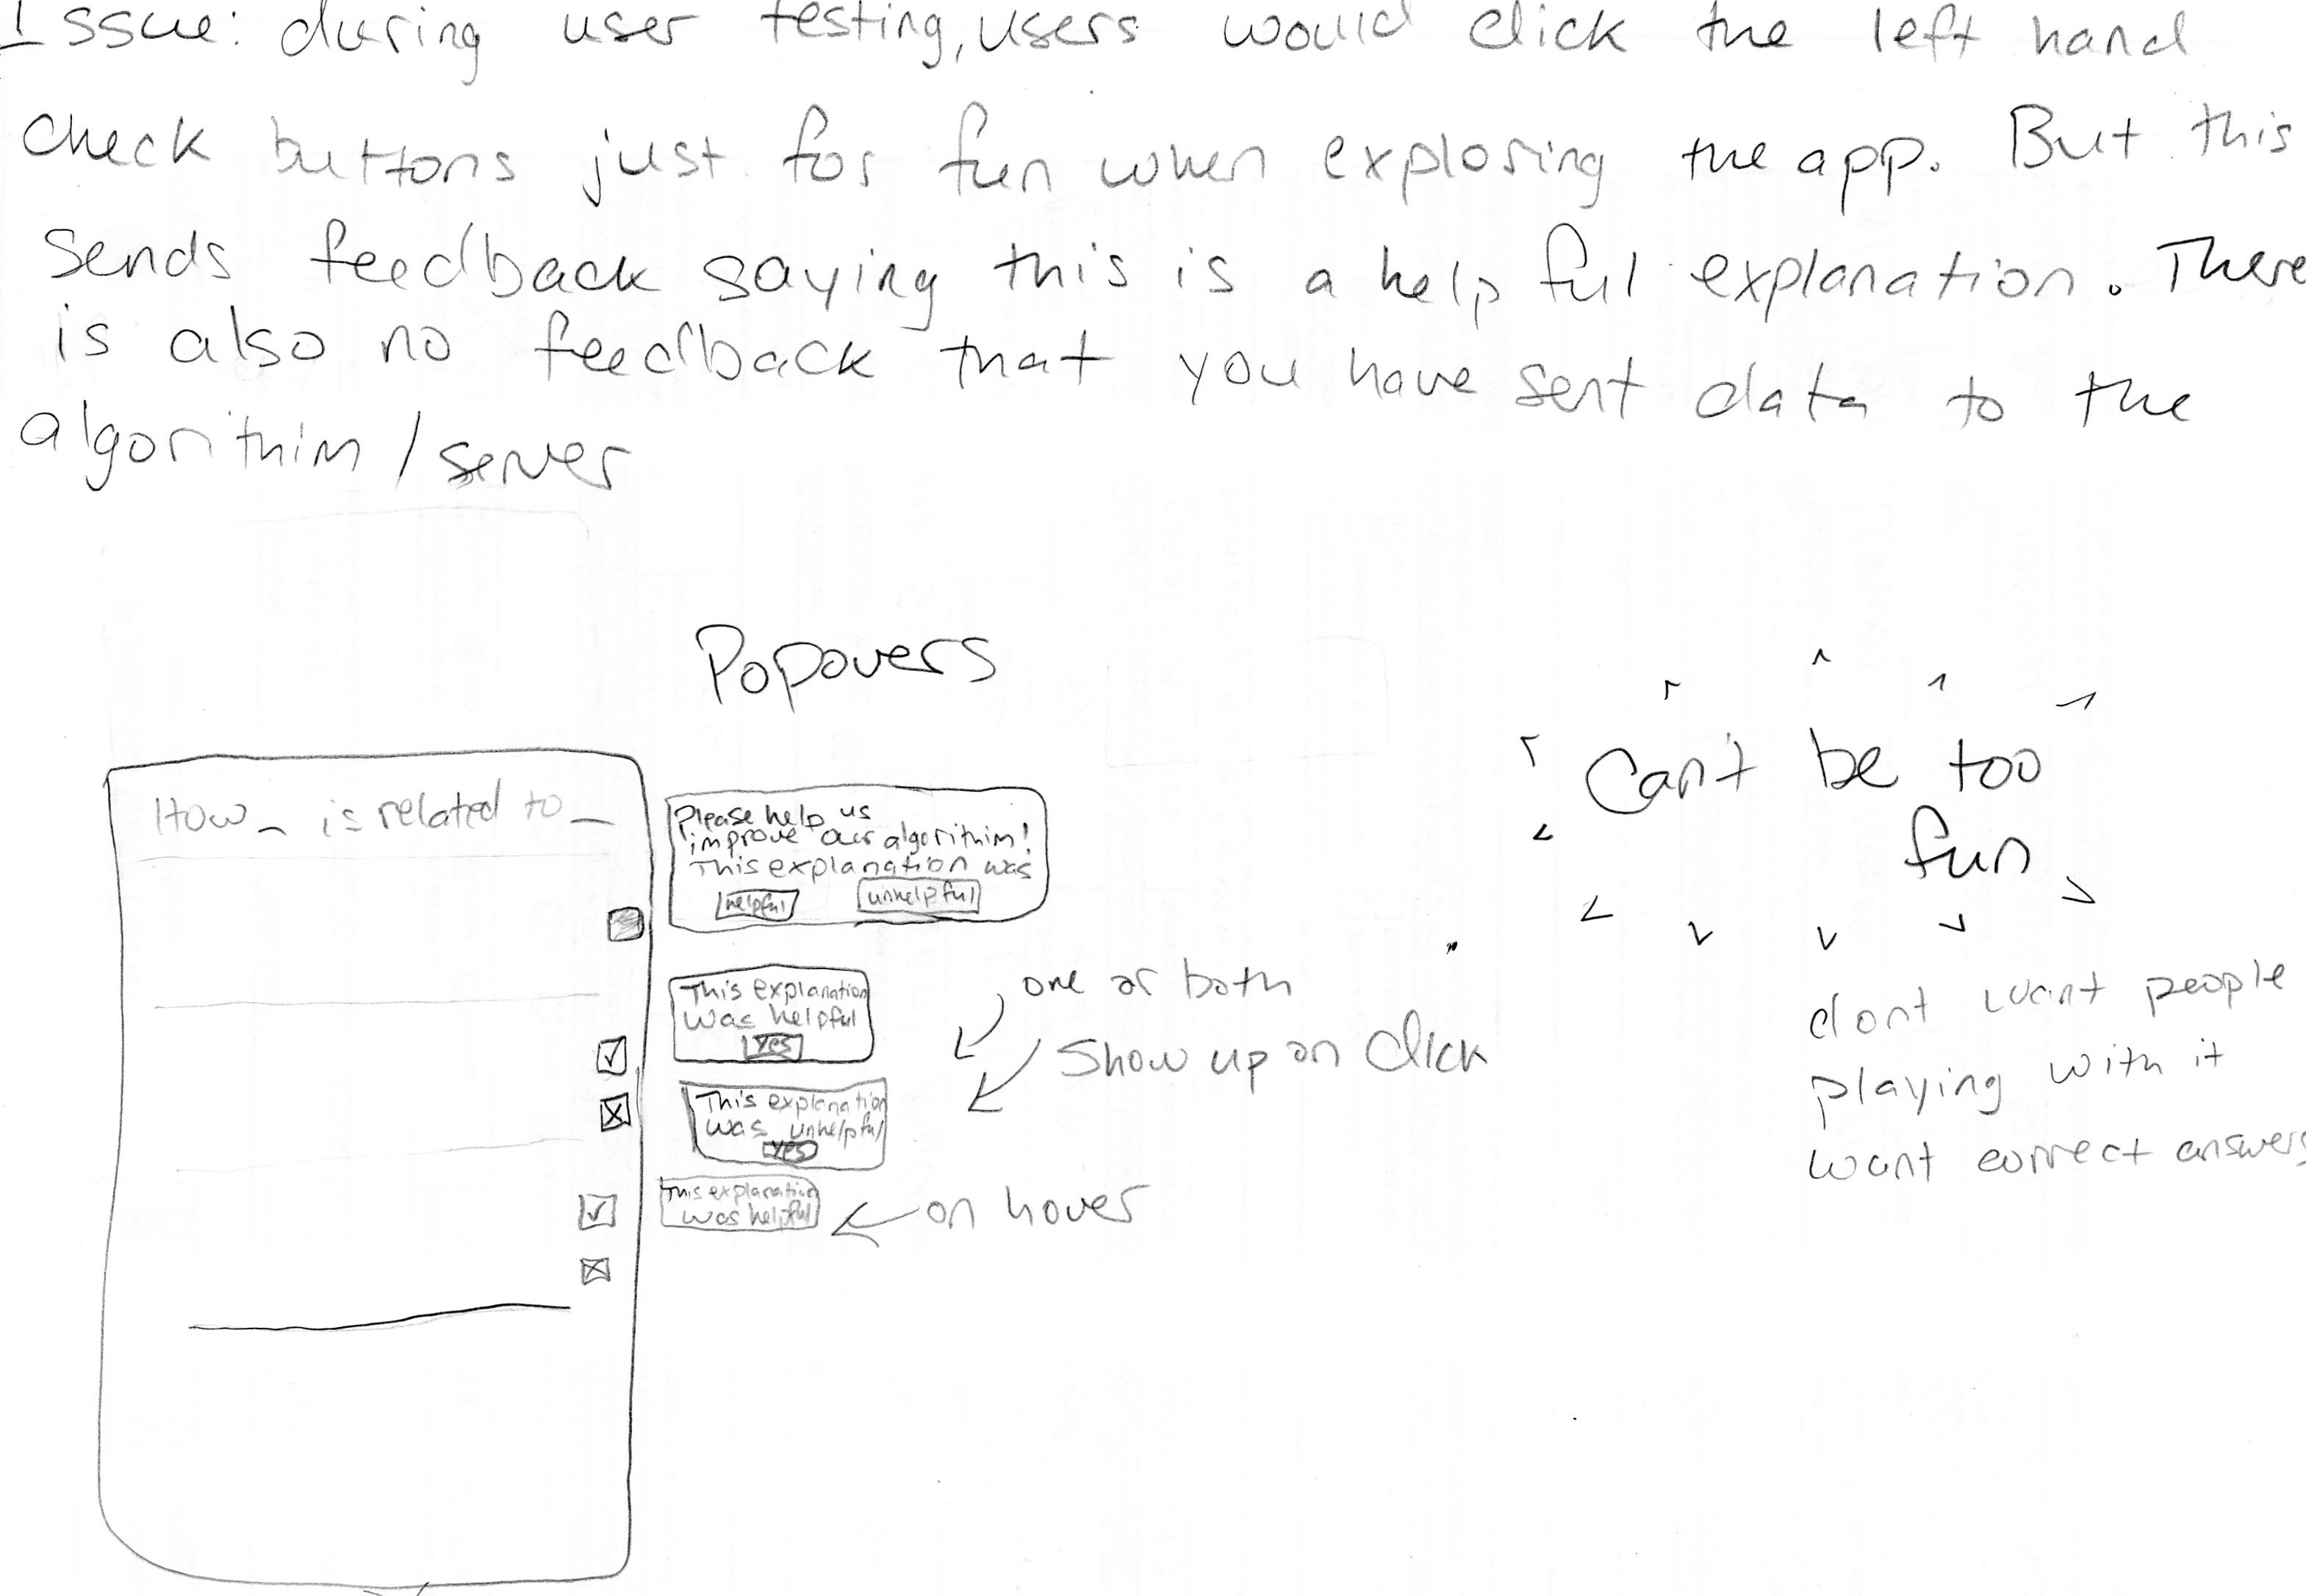 Issue: during user testing, users would click the left hand
check buttons just for fun when exploring the app. But this
sends feedback saying this is a helpful explanation. There
is also no feedback that you have sent data to the
algorithim / server
Popovers
How _ is related to _
Please help us
improve our algorithim!
This explanation was
helpful unhelpful
This explanation
was helpful
yes
This explanation
was unhelpful
yes
This explanation
was helpful
one or both
Show up on click
on hover
Can't be too
fun
dont want people
playing with it
want correct answers